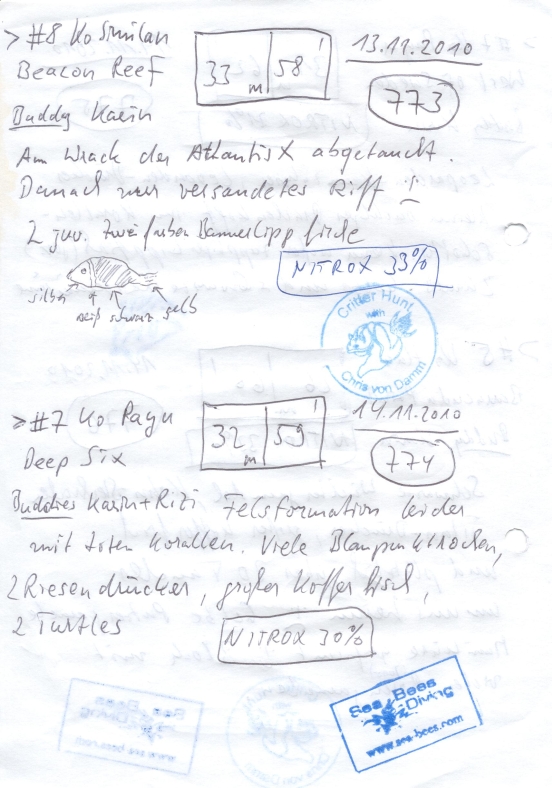 > #8 Ko Similan
33 m 58'
13.11.2010
Beacon Reef
773
Buddy Karin
Am Wrack der Atlantis X abgetaucht.
Danach nur versandetes Riff :(
2 juv. Zweifarben Bannerlippfische
NITROX 33%
silber weiß schwarz gelb
Critter Hunt
with
Chris von Damm
> #7 Ko Payu
32 m 59'
14.11.2010
Deep Six
774
Buddies Karin + Rizi Felsformation leider
mit toten Korallen. Viele Blaupunktrochen,
2 Riesendrücker, großer Kofferfisch,
2 Turtles
NITROX 30%
Sea Bees
Diving
www.sea-bees.com